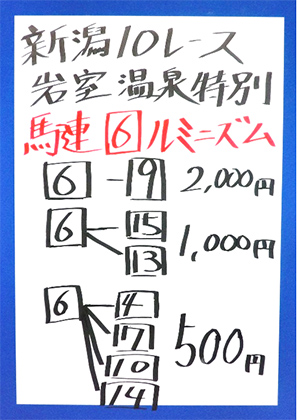 新潟10レース
岩室温泉特別
馬連 6 ルミニズム
6 - 9 2,000円
6 15 1,000円
13
6 4
17 500円
10
14